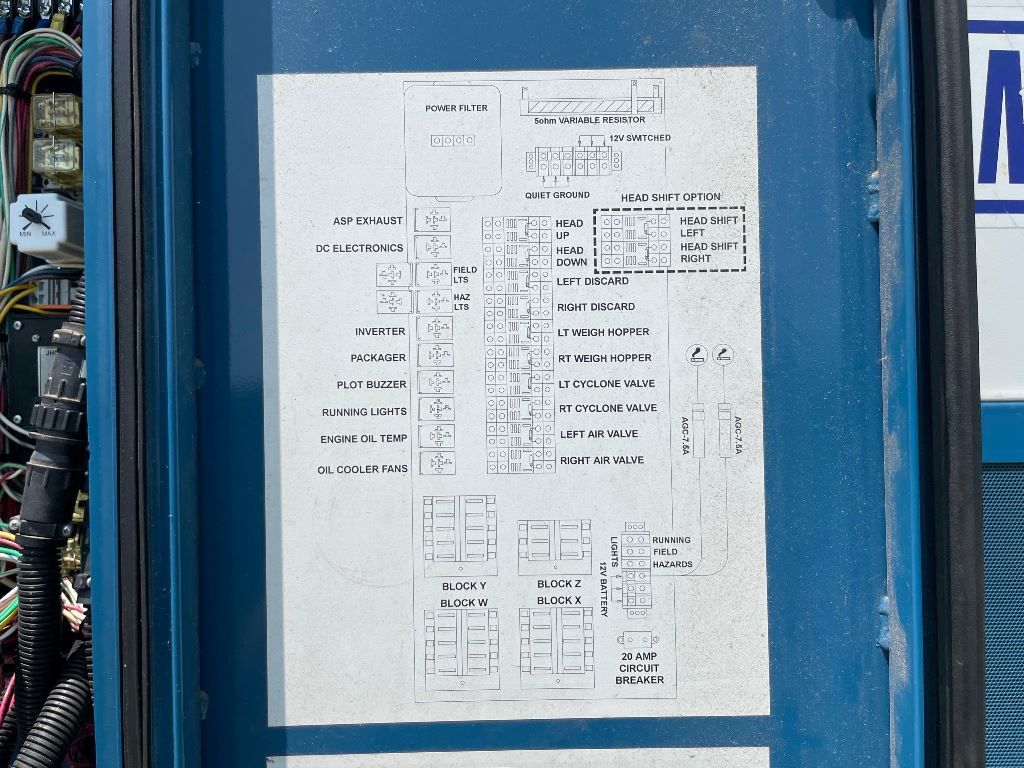 POWER FILTER
5ohm VARIABLE RESISTOR
12V SWITCHED
QUIET GROUND
HEAD SHIFT OPTION
ASP EXHAUST
DC ELECTRONICS
FIELD
LTS
HAZ
LTS
INVERTER
PACKAGER
PLOT BUZZER
RUNNING LIGHTS
ENGINE OIL TEMP
OIL COOLER FANS
HEAD
UP
HEAD
DOWN
LEFT DISCARD
RIGHT DISCARD
LT WEIGH HOPPER
RT WEIGH HOPPER
LT CYCLONE VALVE
RT CYCLONE VALVE
LEFT AIR VALVE
RIGHT AIR VALVE
HEAD SHIFT
LEFT
HEAD SHIFT
RIGHT
AGC-7.5A
AGC-7.5A
BLOCK Y
BLOCK Z
BLOCK W
BLOCK X
LIGHTS
RUNNING
FIELD
HAZARDS
12V BATTERY
20 AMP
CIRCUIT
BREAKER
MIN MAX